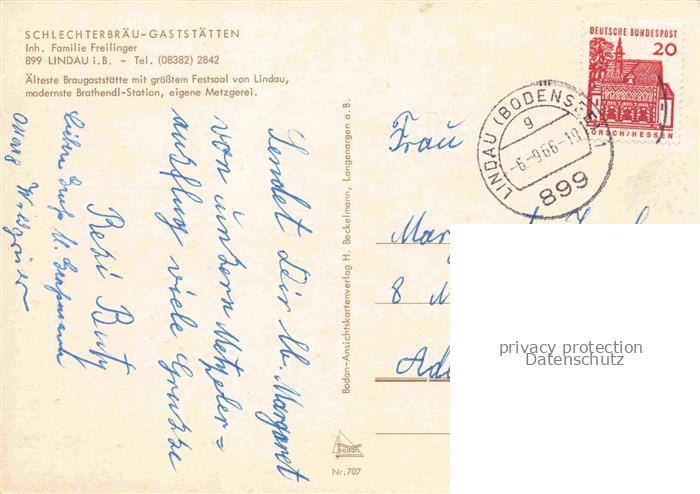 SCHLECHTERBRÄU-GASTSTÄTTEN
Inh. Familie Freilinger
899 LINDAU i.B. - Tel. (08382) 2842
Älteste Braugaststätte mit größtem Festsaal von Lindau,
modernste Brathendl-Station, eigene Metzgerei.
Sendet Dir lb. Margaret
von unsern Metzger=
ausflug viele Grüsse
Resi
Liebe Grüße
Bodan-Ansichtskartenverlag H. Bockelmann, Langenargen a. B.
bodan
Nr. 707
DEUTSCHE BUNDESPOST
20
LORSCH/HESSEN
LINDAU (BODENSEE)
g
-6.-9.66-19
899
Frau
8 M
privacy protection
Datenschutz